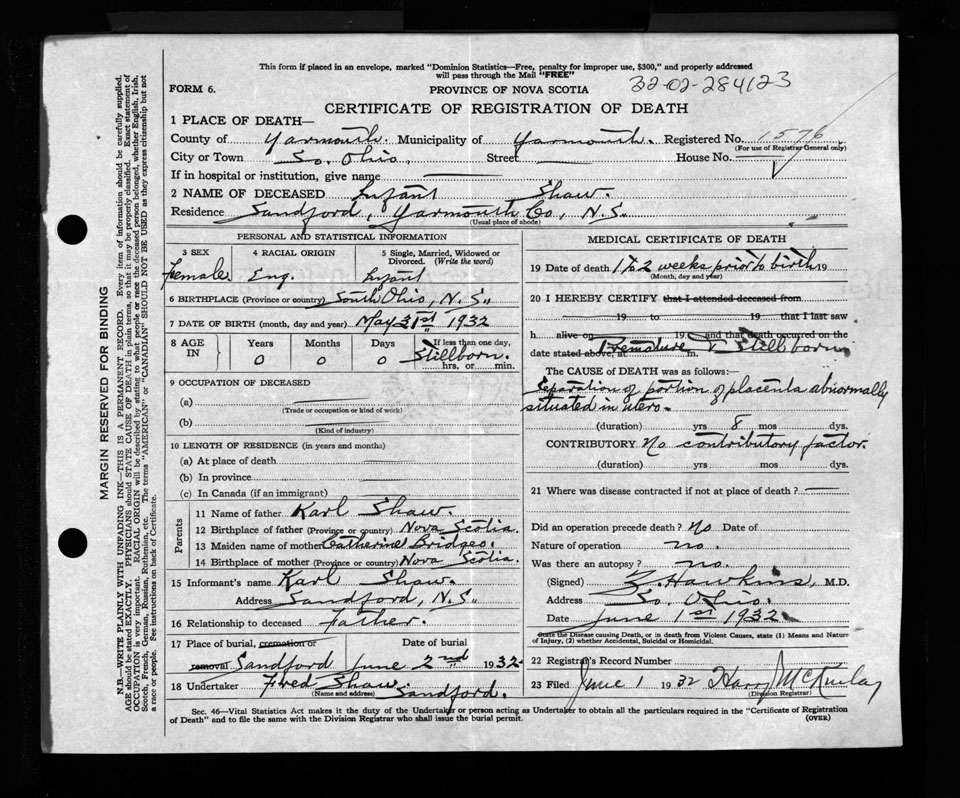 This form if placed in an envelope, marked "Dominion Statistics—Free, penalty for improper use, $300," and properly addressed
will pass through the Mail "FREE"
FORM 6. PROVINCE OF NOVA SCOTIA 32-02-284123
CERTIFICATE OF REGISTRATION OF DEATH
1 PLACE OF DEATH—
County of Yarmouth. Municipality of Yarmouth. Registered No. 1576
(For use of Registrar General only)
City or Town So. Ohio. Street House No.
If in hospital or institution, give name
2 NAME OF DECEASED Infant Shaw.
Residence Sandford, Yarmouth Co., N.S.
(Usual place of abode)
PERSONAL AND STATISTICAL INFORMATION
3 SEX 4 RACIAL ORIGIN 5 Single, Married, Widowed or
Divorced. (Write the word)
Female Eng. Infant
6 BIRTHPLACE (Province or country) South Ohio, N.S.
7 DATE OF BIRTH (month, day and year) May 31st 1932
8 AGE IN Years Months Days If less than one day,
0 0 0 Stillborn.
hrs. or min.
9 OCCUPATION OF DECEASED
(a)
(Trade or occupation or kind of work)
(b)
(Kind of industry)
10 LENGTH OF RESIDENCE (in years and months)
(a) At place of death
(b) In province
(c) In Canada (if an immigrant)
Parents
11 Name of father Karl Shaw.
12 Birthplace of father (Province or country) Nova Scotia.
13 Maiden name of mother Catherine Bridges.
14 Birthplace of mother (Province or country) Nova Scotia.
15 Informant's name Karl Shaw.
Address Sandford, N.S.
16 Relationship to deceased Father.
17 Place of burial, cremation or Date of burial
removal Sandford June 2nd 1932
18 Undertaker Fred Shaw
(Name and address) Sandford.
MEDICAL CERTIFICATE OF DEATH
19 Date of death 1 to 2 weeks prior to birth 19
(Month, day and year)
20 I HEREBY CERTIFY that I attended deceased from
19 to 19 that I last saw
h alive on 19 and that death occurred on the
date stated above, at m. Premature & Stillborn
The CAUSE of DEATH was as follows:—
Separation of portion of placenta abnormally
situated in utero.
(duration) yrs 8 mos dys.
CONTRIBUTORY No contributory factor.
(duration) yrs mos dys.
21 Where was disease contracted if not at place of death?
Did an operation precede death? no Date of
Nature of operation no.
Was there an autopsy? no.
(Signed) Hawkins, M.D.
Address So. Ohio.
Date June 1st 1932
State the Disease causing Death, or in death from Violent Causes, state (1) Means and Nature
of Injury, (2) whether Accidental, Suicidal or Homicidal.
22 Registrar's Record Number
23 Filed June 1 1932 Harry McKinlay
(Division Registrar)
Sec. 46—Vital Statistics Act makes it the duty of the Undertaker or person acting as Undertaker to obtain all the particulars required in the "Certificate of Registration
of Death" and to file the same with the Division Registrar who shall issue the burial permit. (OVER)
MARGIN RESERVED FOR BINDING
N.B.—WRITE PLAINLY WITH UNFADING INK—THIS IS A PERMANENT RECORD. Every item of information should be carefully supplied.
AGE should be stated EXACTLY. PHYSICIANS should STATE CAUSE OF DEATH in plain terms, so that it may be properly classified. Exact statement of
OCCUPATION is very important. RACIAL ORIGIN will be described by stating to what people or race the deceased person belonged, whether English, Irish,
Scotch, French, German, Russian, Ruthenian, etc. The terms "AMERICAN" or "CANADIAN" SHOULD NOT BE USED as they express citizenship but not
a race or people. See instructions on back of Certificate.